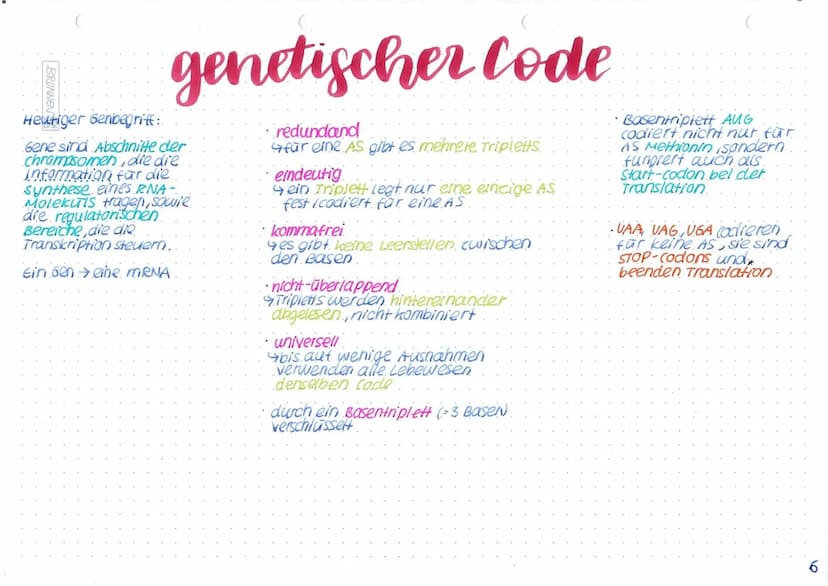 genetischer Code
BRUNNEN
Heutiger Genbegriff:
Gene sind Abschnitte der
Chromosomen, die die
Information für die
Synthese eines RNA-
Moleküls tragen, sowie
die regulatorischen
Bereiche, die die
Transkription steuern.
Ein Gen → eine mRNA
· redundand
↳ für eine AS gibt es mehrere Tripletts
· eindeutig
↳ ein Triplett legt nur eine einzige AS
fest / codiert für eine AS
· kommafrei
↳ es gibt keine Leerstellen zwischen
den Basen
· nicht-überlappend
↳ Tripletts werden hintereinander
abgelesen, nicht kombiniert
· universell
↳ bis auf wenige Ausnahmen
verwenden alle Lebewesen
denselben Code
· durch ein Basentriplett (= 3 Basen)
verschlüsselt
· Basentriplett AUG
codiert nicht nur für
AS Methionin, sondern
fungiert auch als
Start-codon bei der
Translation
· UAA, UAG, UGA codieren
für keine AS, sie sind
STOP-Codons und
beenden Translation
6